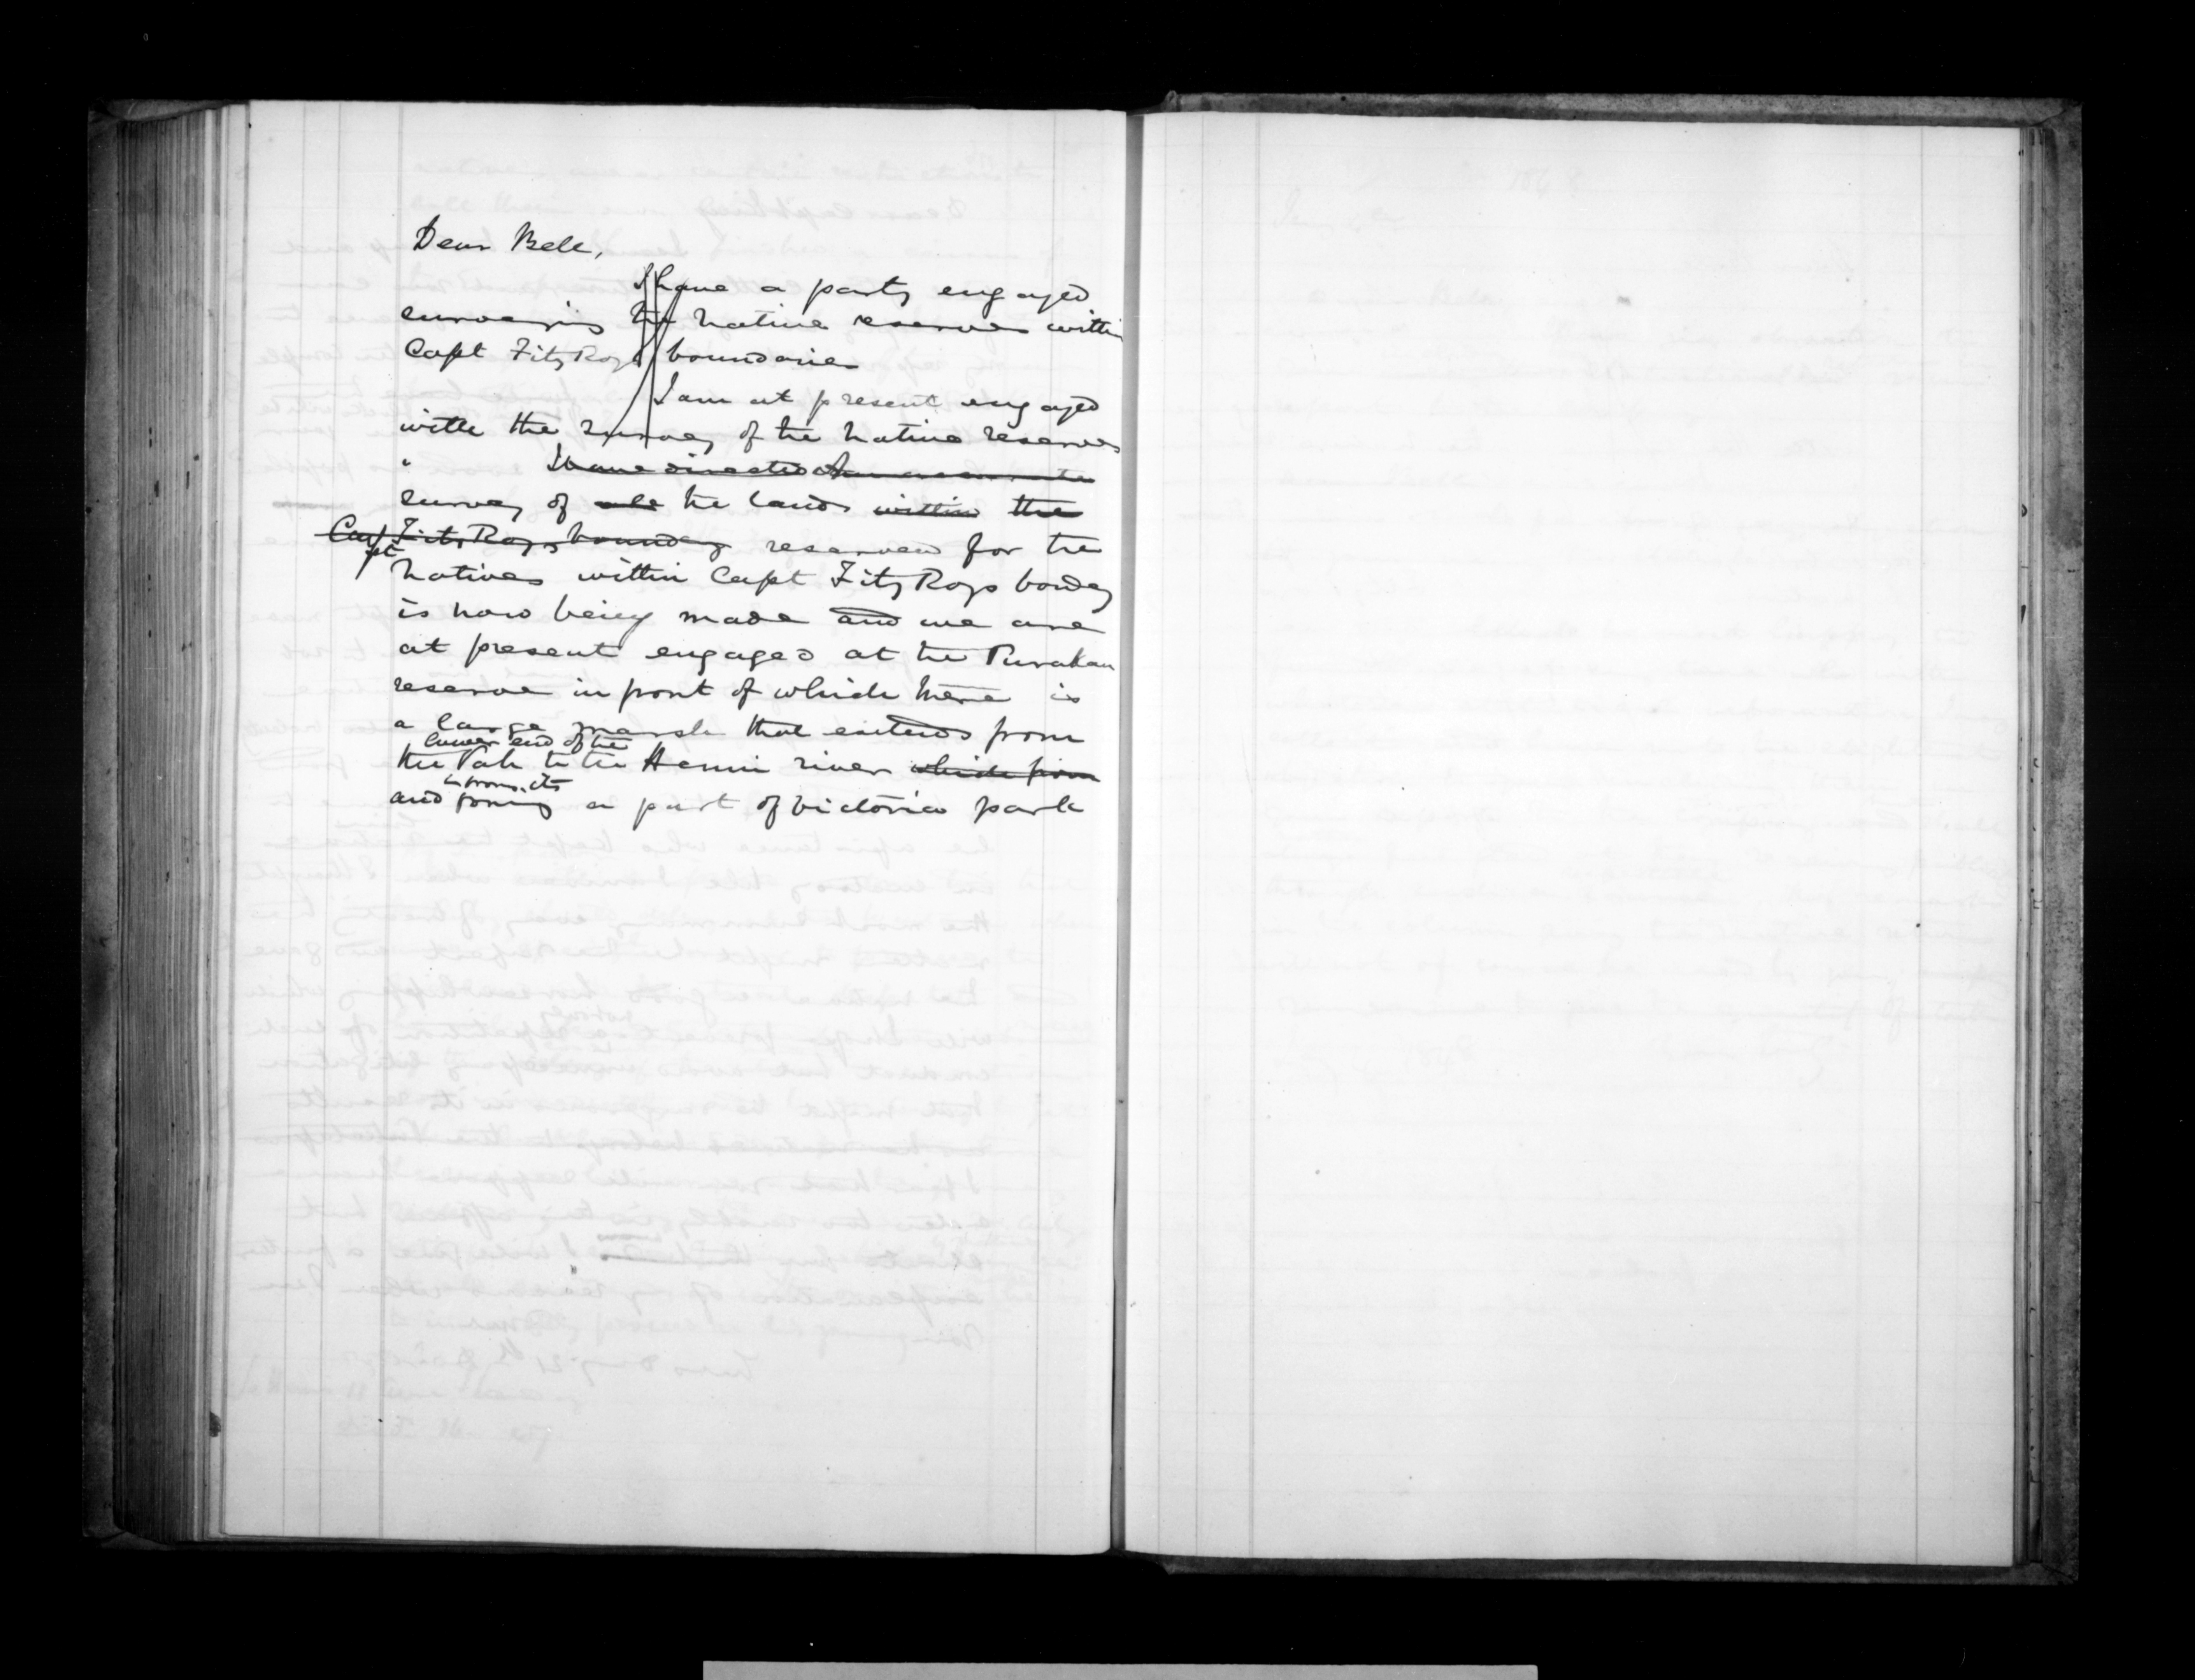 Dear Bell,
I have a party engaged
surveying the native reserves within
Capt FitzRoys boundaries
I am at present engaged
with the survey of the native reserves
I have directed An accurate
survey of all the lands within the
Capt FitzRoys boundary reserved for the
natives within Capt FitzRoys boundy
is now being made and we are
at present engaged at the Purakau
reserve in front of which there is
a large marsh that extends from
lower end of the
the Pah to the Henui river which from
and forming a part of Victoria park